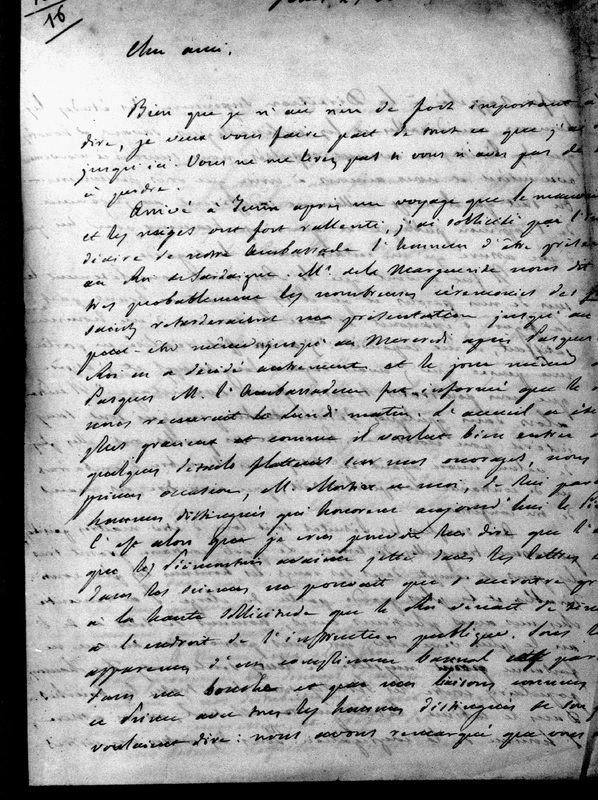 16
Cher ami,
Bien que je n'aie rien de fort important à
dire, je veux vous faire part de tout ce que j'ai
jusqu'ici. Vous ne me lirez pas si vous n'avez pas de
à perdre.
Arrivé à Turin après un voyage que le mauvais
et les neiges ont fort ralenti, j'ai sollicité par l'
de notre Ambassade l'honneur d'être
au Roi de Sardaigne. Mr. de la Marguerite nous dit
très probablement les nombreuses cérémonies des
saints retarderaient ma présentation jusqu'au
peut-être même jusqu'au Mercredi après Pasques
Roi en a décidé autrement et le jour même
Pasques M. l'Ambassadeur fut informé que le
nous recevrait le Lundi matin. L'accueil a été
plus gracieux et comme il voulut bien entrer
quelques détails flatteurs sur mes ouvrages, nous
primes occasion, M. Mortier et moi, de lui
hommes distingués qui honorent aujourd'hui le
C'est alors que je crus pouvoir lui dire que l'
que les Piémontais avaient jetté dans les lettres
dans les sciences ne pouvait que s'accroitre
à la haute sollicitude que le Roi venait de
à l'endroit de l'instruction publique. Sous
apparences d'un compliment bannal
dans ma bouche et que mes liaisons connues
ce Prince avec tous les hommes distingués de son
voulaient dire: nous avons remarqué que vous